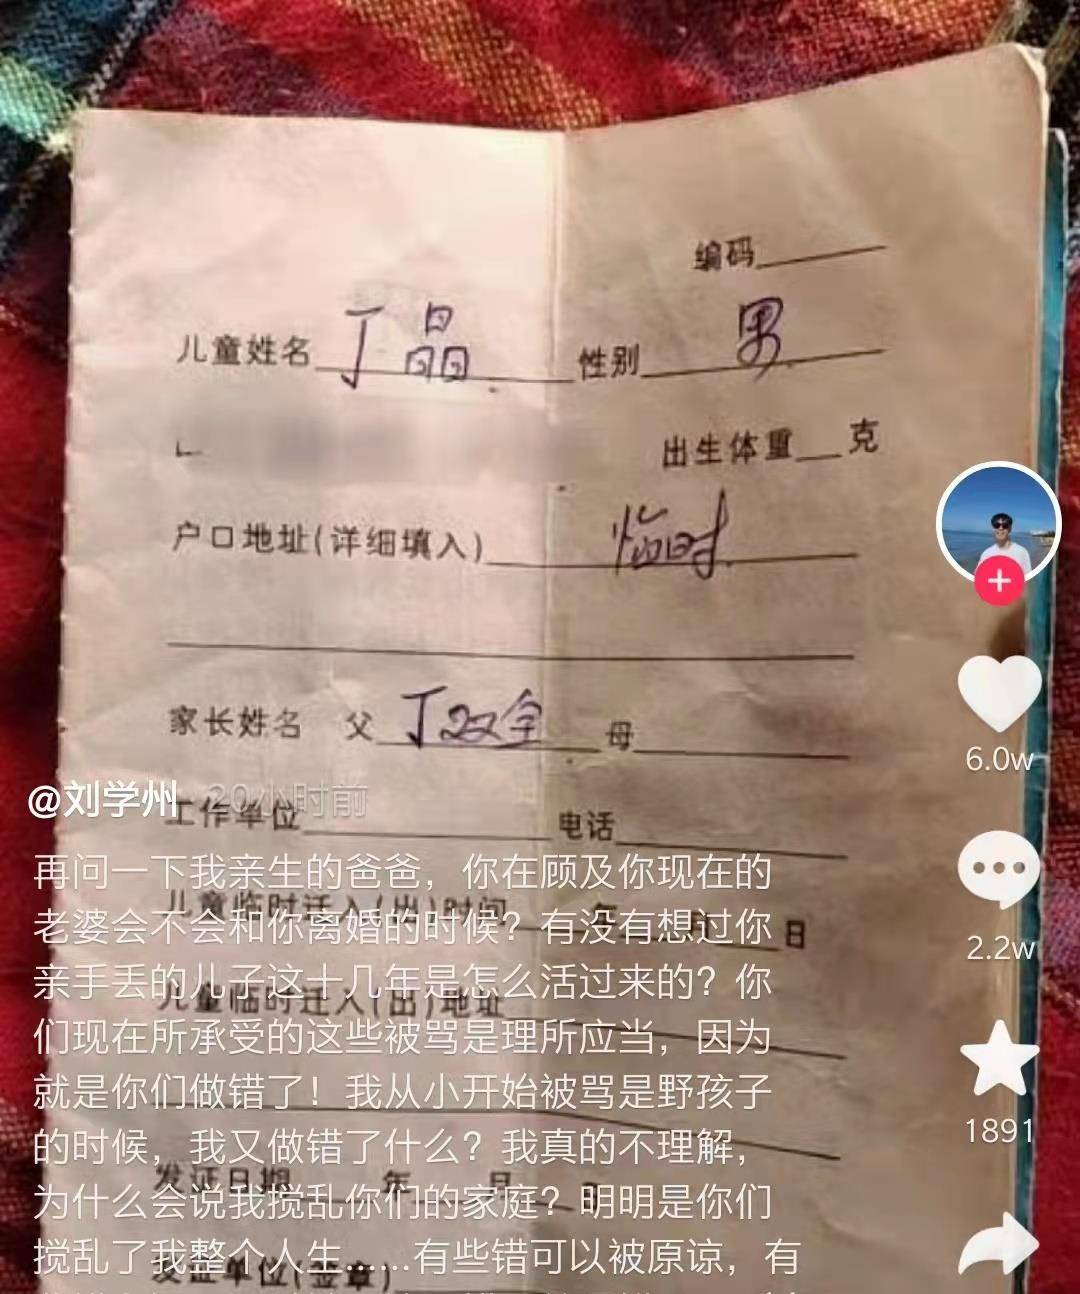 编码
儿童姓名 丁晶 性别 男
出生体重 克
户口地址(详细填入) 临时
家长姓名 父 丁双全 母
6.0w
@刘学州 20小时前
工作单位 电话
再问一下我亲生的爸爸，你在顾及你现在的
儿童临时迁入(出)时间 年 月 日
老婆会不会和你离婚的时候？有没有想过你
亲手丢的儿子这十几年是怎么活过来的？你
2.2w
儿童临时迁入(出)地址
们现在所承受的这些被骂是理所应当，因为
就是你们做错了！我从小开始被骂是野孩子
1891
的时候，我又做错了什么？我真的不理解，
发证日期 年 月 日
为什么会说我搅乱你们的家庭？明明是你们
搅乱了我整个人生……有些错可以被原谅，有
发证单位(签章)